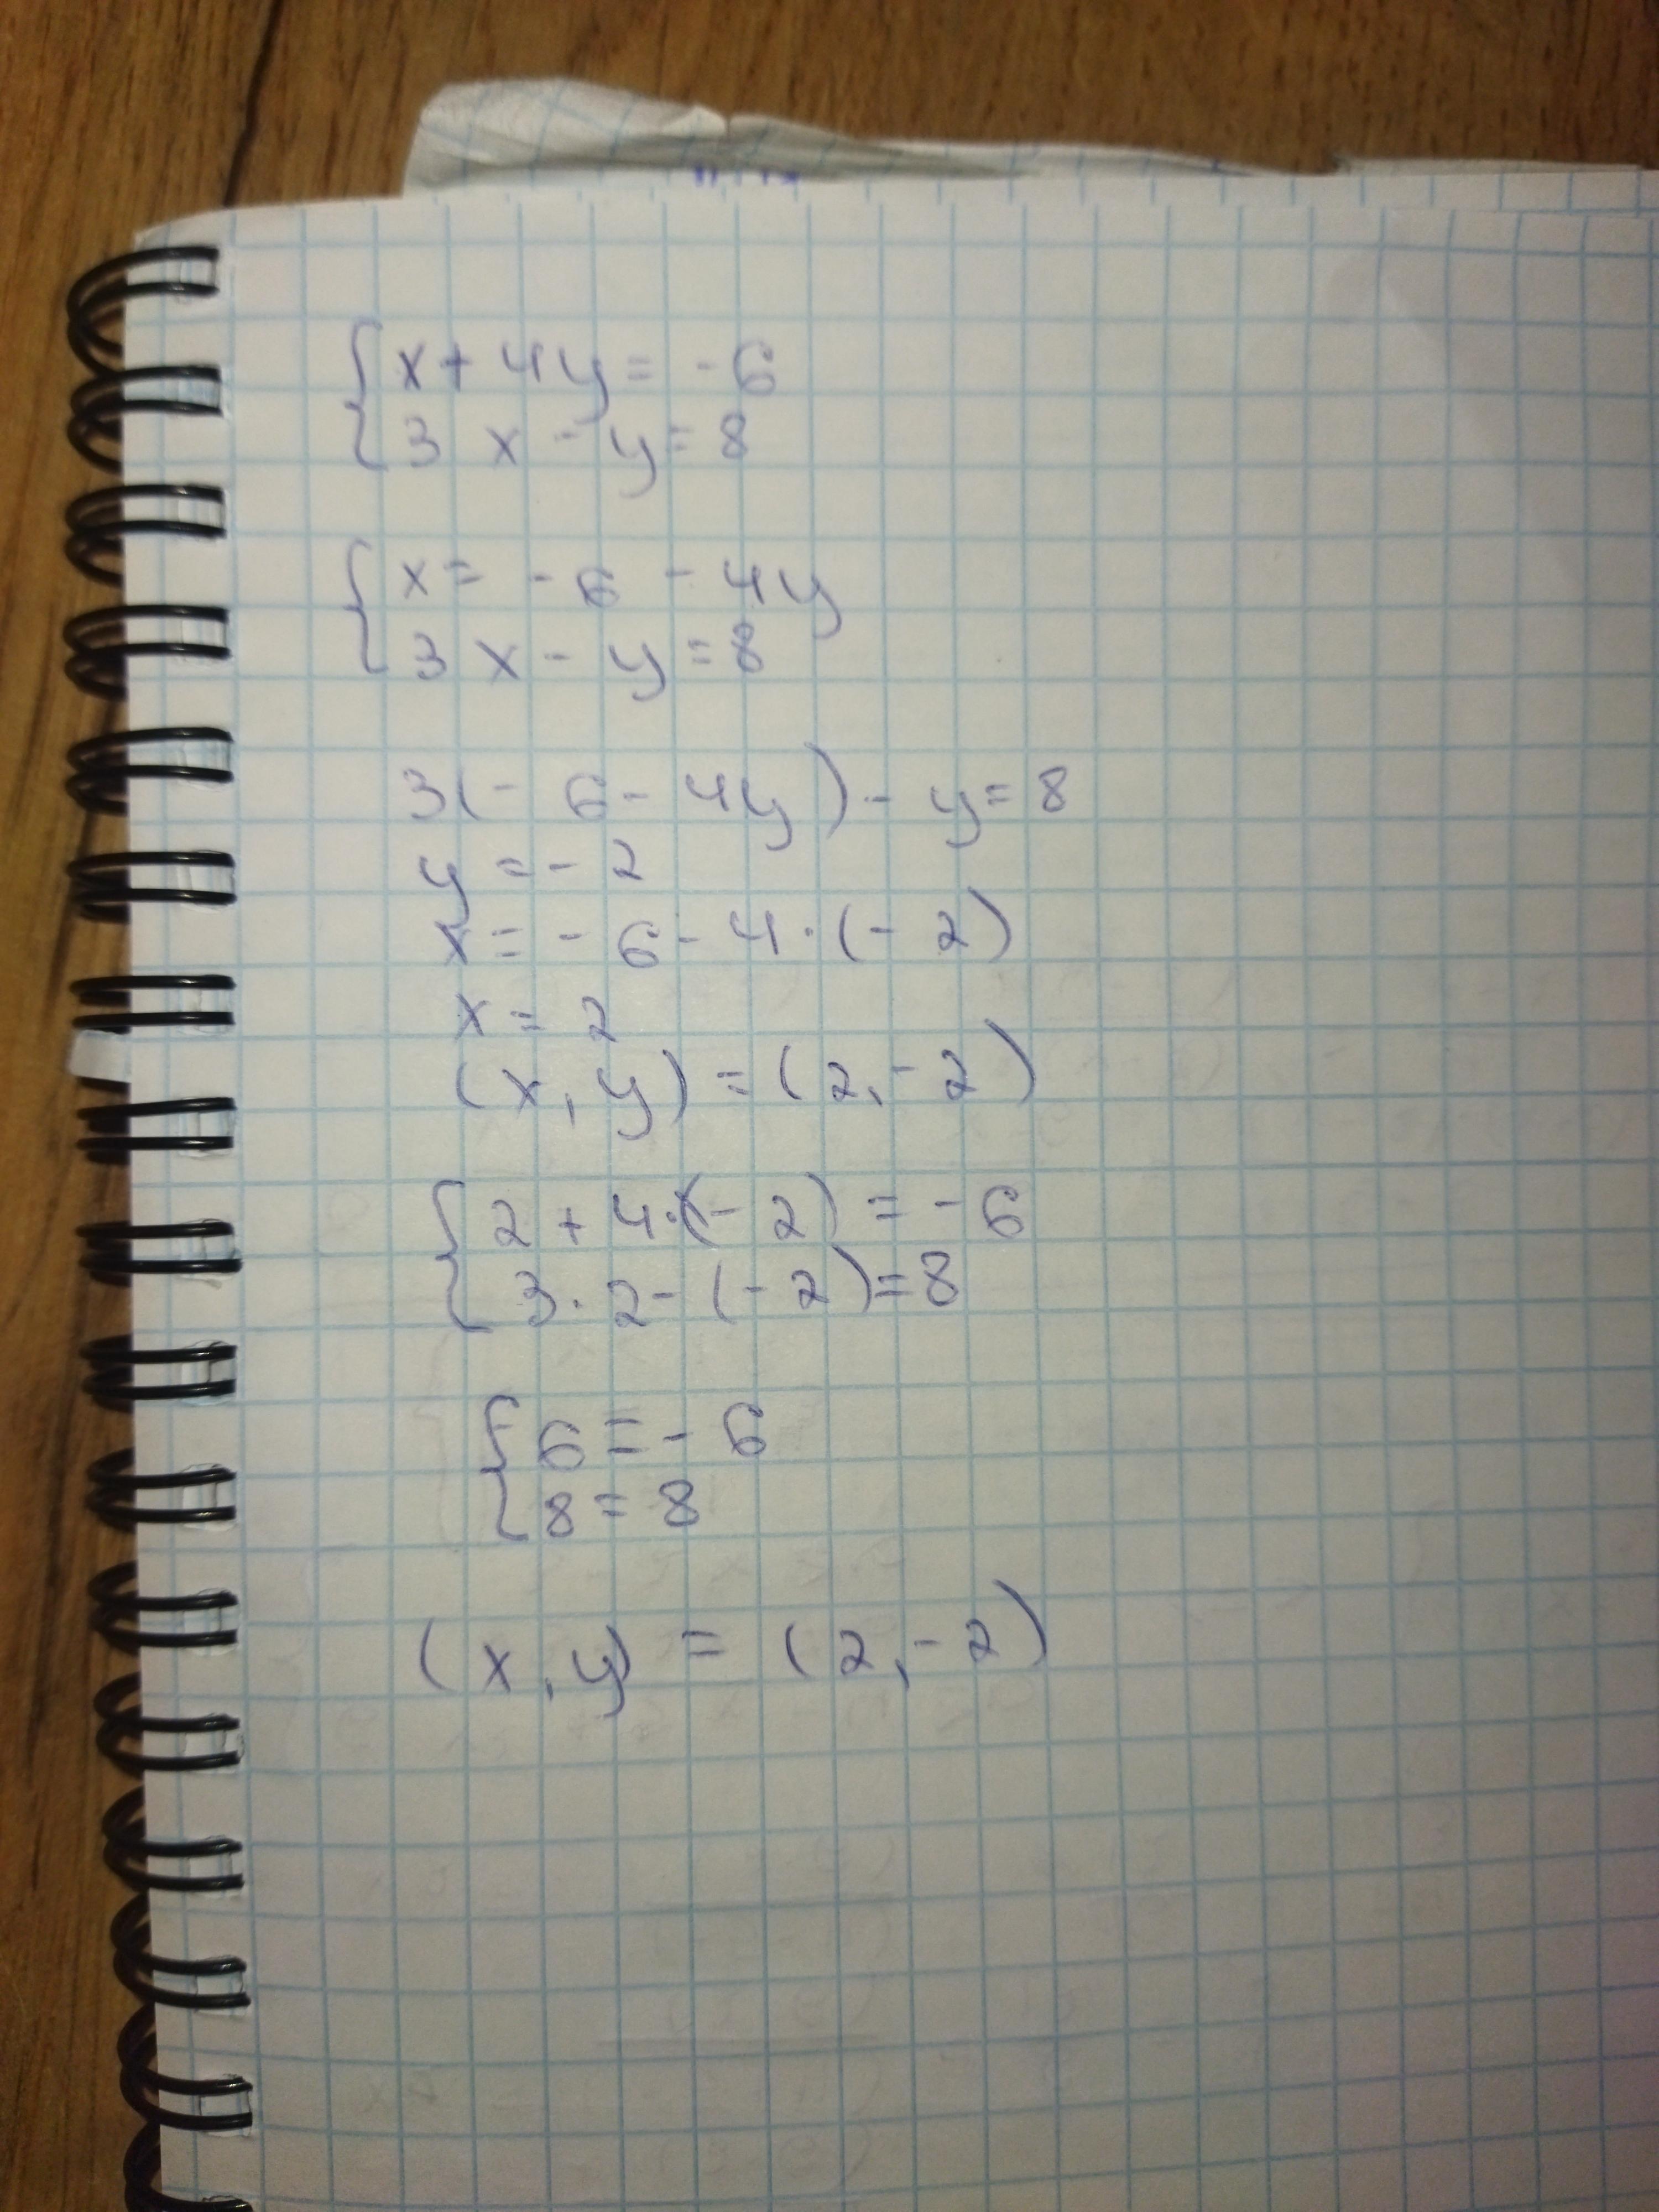 {x + 4y = -6
{3x - y = 8
{x = -6 - 4y
{3x - y = 8
3(-6 - 4y) - y = 8
y = -2
x = -6 - 4·(-2)
x = 2
(x, y) = (2, -2)
{2 + 4·(-2) = -6
{3·2 - (-2) = 8
{6 = -6
{8 = 8
(x, y) = (2, -2)